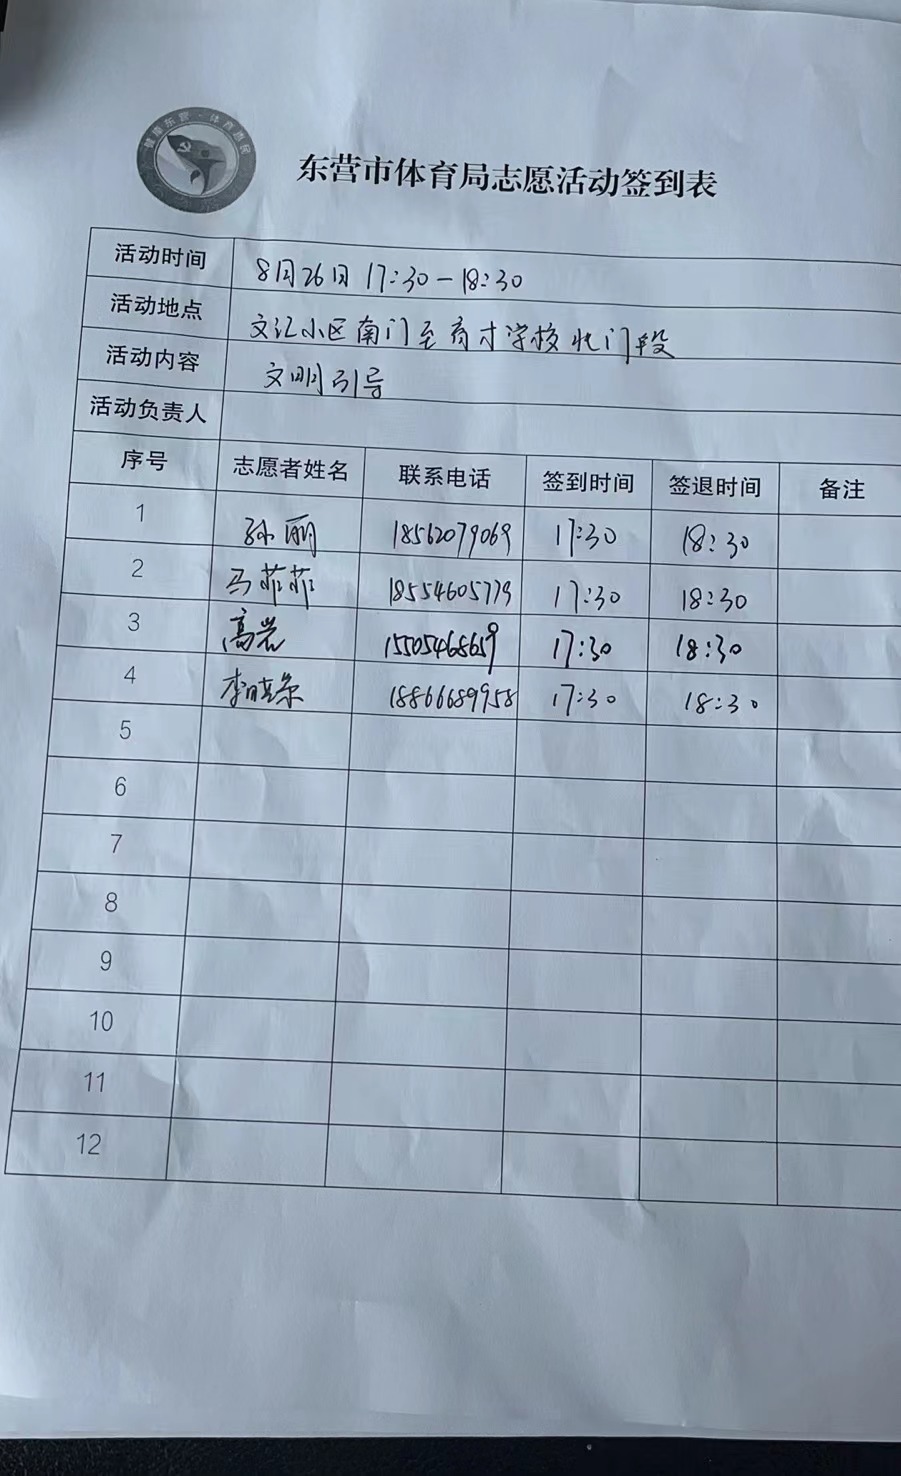 健康东营·体育惠民
东营市体育局志愿活动签到表
活动时间 8月26日 17:30-18:30
活动地点 文汇小区南门至育才学校北门段
活动内容 文明引导
活动负责人
序号 志愿者姓名 联系电话 签到时间 签退时间 备注
1 孙丽 18562079069 17:30 18:30
2 马菲菲 18554605779 17:30 18:30
3 高岩 15505468659 17:30 18:30
4 18866689958 17:30 18:30
5
6
7
8
9
10
11
12